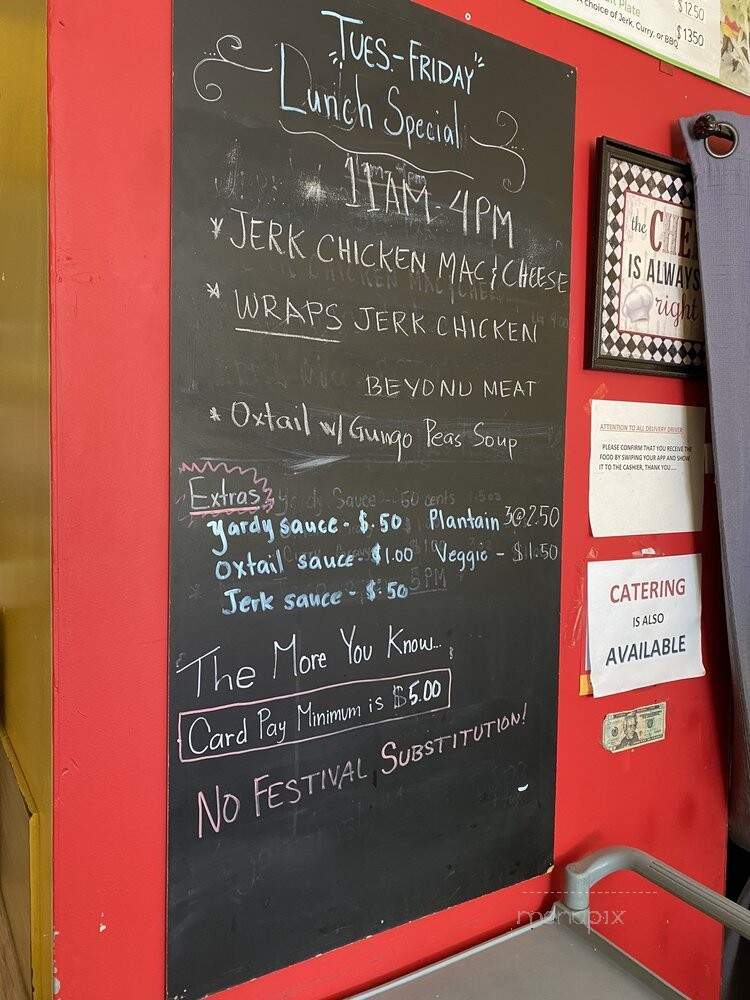 "TUES.-FRIDAY"
Lunch Special
11AM-4PM
* JERK CHICKEN MAC & CHEESE
* WRAPS JERK CHICKEN
BEYOND MEAT
* Oxtail w/ Gungo Peas Soup
Extras
yardy sauce - $.50 Plantain 3@2.50
Oxtail sauce - $1.00 Veggie - $1.50
Jerk sauce - $.50
The More You Know...
Card Pay Minimum is $5.00
NO FESTIVAL SUBSTITUTION!
Plate
$12.50
choice of Jerk, Curry, or BBQ
$13.50
the CHE
IS ALWAYS
right
ATTENTION TO ALL DELIVERY DRIVER:
PLEASE CONFIRM THAT YOU RECEIVE THE
FOOD BY SWIPING YOUR APP AND SHOW
IT TO THE CASHIER, THANK YOU....
CATERING
IS ALSO
AVAILABLE
menupix